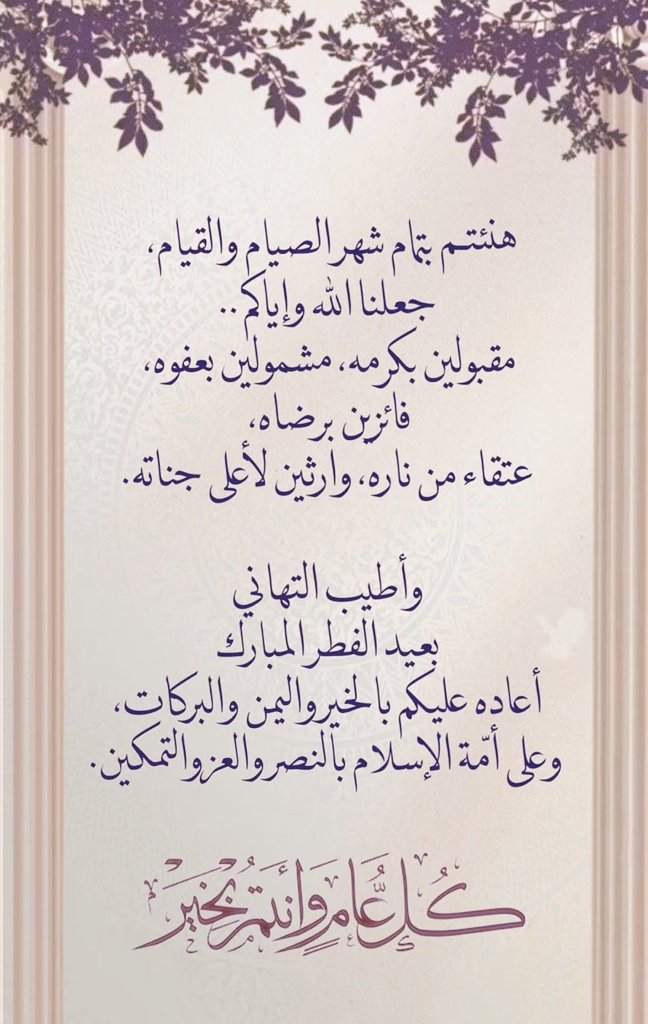 هنئتم بتمام شهر الصيام والقيام،
جعلنا الله وإياكم..
مقبولين بكرمه، مشمولين بعفوه،
فائزين برضاه،
عتقاء من ناره، وارثين لأعلى جناته.
وأطيب التهاني
بعيد الفطر المبارك
أعاده عليكم بالخير واليمن والبركات،
وعلى أمّة الإسلام بالنصر والعز والتمكين.
كُلُّ عَامٍ وَأَنتُم بِخَيْر